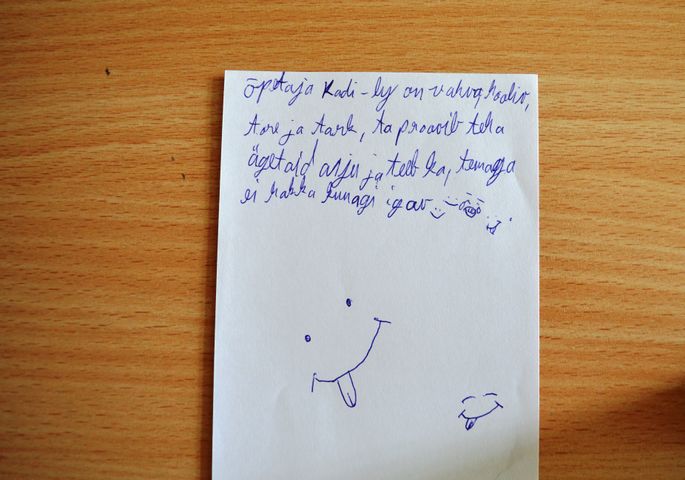 õpetaja Kadi-ly on vahva, hooliv,
tore ja tark, ta proovib teha
ägetaid asju ja teeb ka, temaga
ei hakka kunagi igav